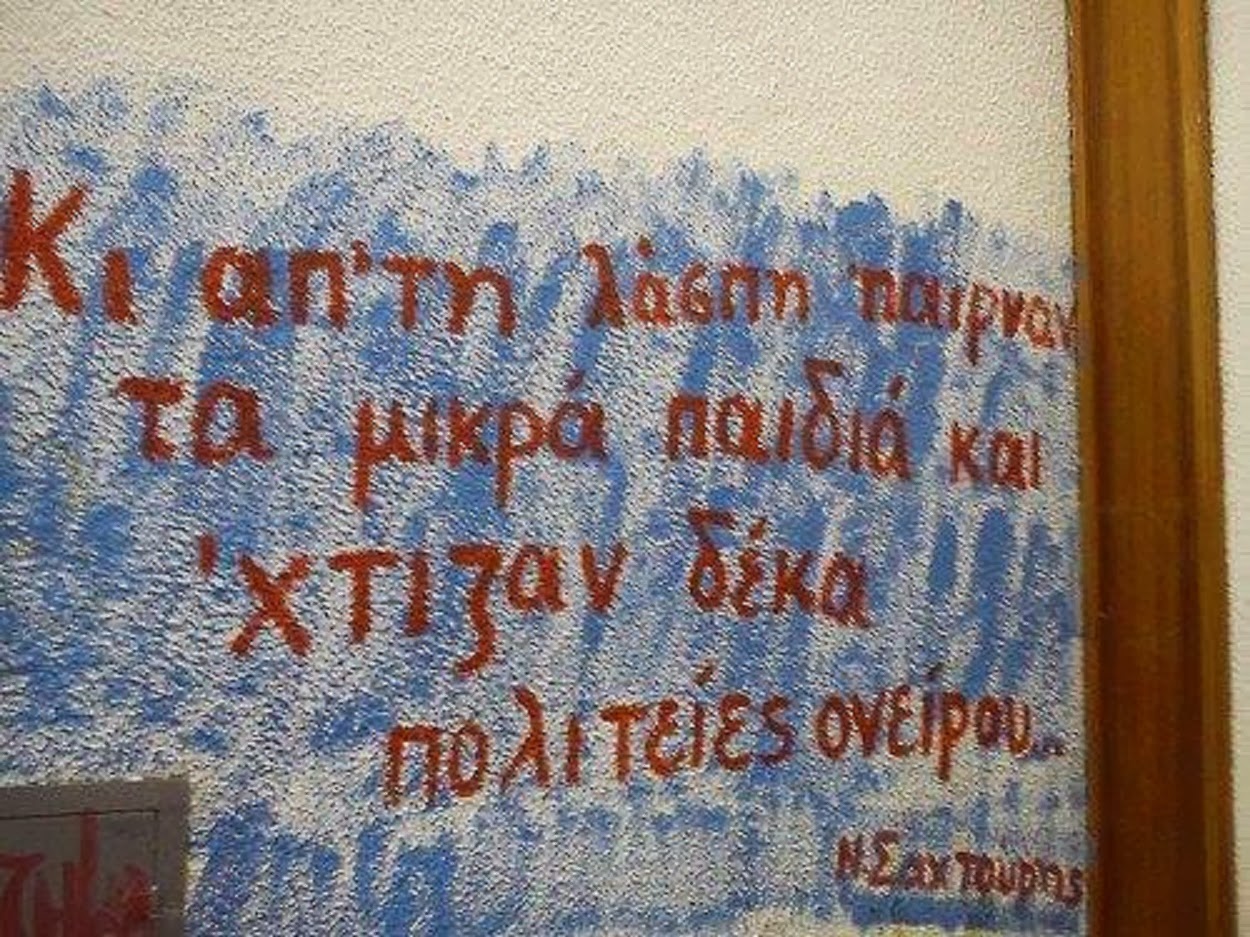 Κι απ'τη λάσπη 'παιρναν
τα μικρά παιδιά και
'χτιζαν δέκα
πολιτείες ονείρου...
Μ.Σαχτουρης